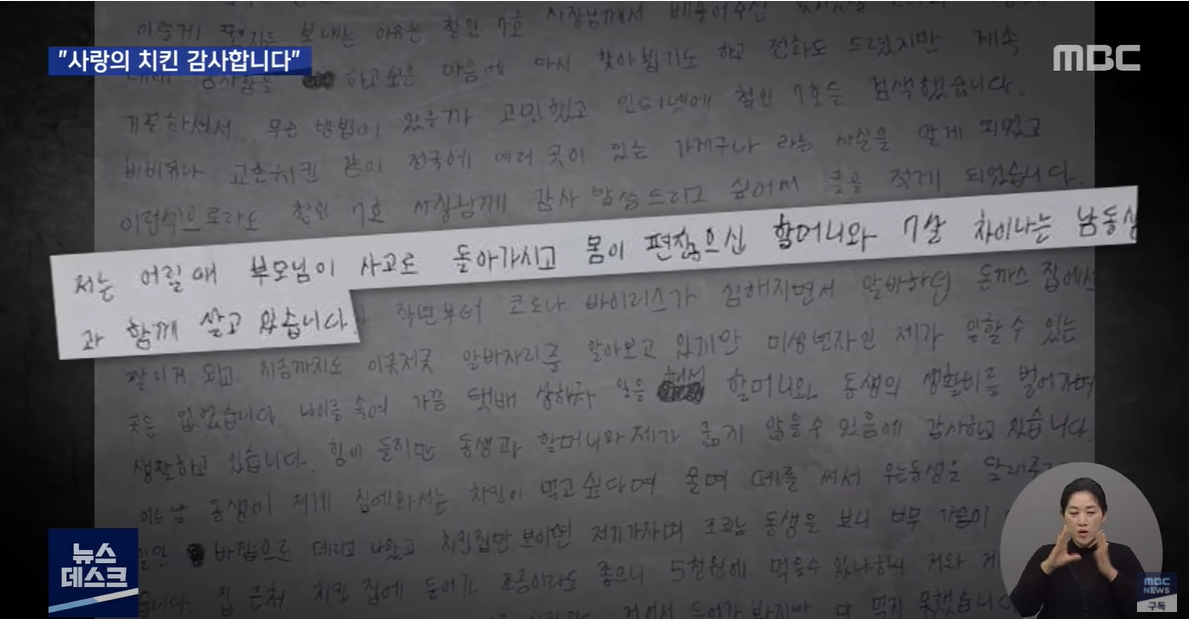 "사랑의 치킨 감사합니다"
MBC
이렇게 편지를 보내는 이유는 철인 7호 사장님께서 베풀어주신
하고싶은 마음에 다시 찾아뵙기도 하고 전화도 드렸지만 계속
거절하셔서 무슨 방법이 있을까 고민했고 인터넷에 철인 7호를 검색했습니다.
비비큐나 교촌치킨 같이 전국에 여러 곳이 있는 가게구나 라는 사실을 알게 되었고
이런식으로라도 철인 7호 사장님께 감사 말씀드리고 싶어서 글을 적게 되었습니다.
저는 어릴때 부모님이 사고로 돌아가시고 몸이 편찮으신 할머니와 7살 차이나는 남동생
과 함께 살고 있습니다.
작년부터 코로나 바이러스가 심해지면서 알바하던 돈까스 집에서
짤리게 되고 지금까지도 이곳저곳 알바자리를 알아보고 있지만 미성년자인 제가 일할 수 있는
곳은 없었습니다. 나이를 속여 가끔 택배 상하차 일을 해서 할머니와 동생의 생활비를 벌어가며
생활하고 있습니다. 힘이 들지만 동생과 할머니와 제가 굶지 않을수 있음에 감사하고 있습니다.
어느날 동생이 제게 집에와서는 치킨이 먹고싶다며 울며 떼를 써서 우는동생을 달래주
일단 바깥으로 데리고 나왔고 치킨집만 보이면 저기가자며 조르는 동생을 보니 너무 가슴이
습니다. 집 근처 치킨 집에 들어가 조금이라도 좋으니 5천원에 먹을수 있냐하니 저와
걸어서 들어가
뉴스
데스크
MBC
NEWS
구독